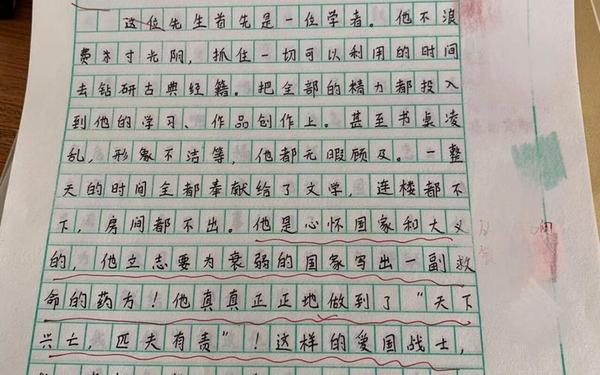 这位先生首先是一位学者。他不浪
费半寸光阴，抓住一切可以利用的时间
去钻研古典经籍。把全部的精力都投入
到他的学习、作品创作上。甚至书桌凌
乱，形象不洁等，他都无暇顾及。一整
天的时间全都奉献给了文学，连楼都不
下，房间都不出。他是心怀国家和大义
的，他立志要为衰弱的国家写出一副救
命的药方！他真真正正地做到了“天下
兴亡，匹夫有责”！这样的爱国战士，